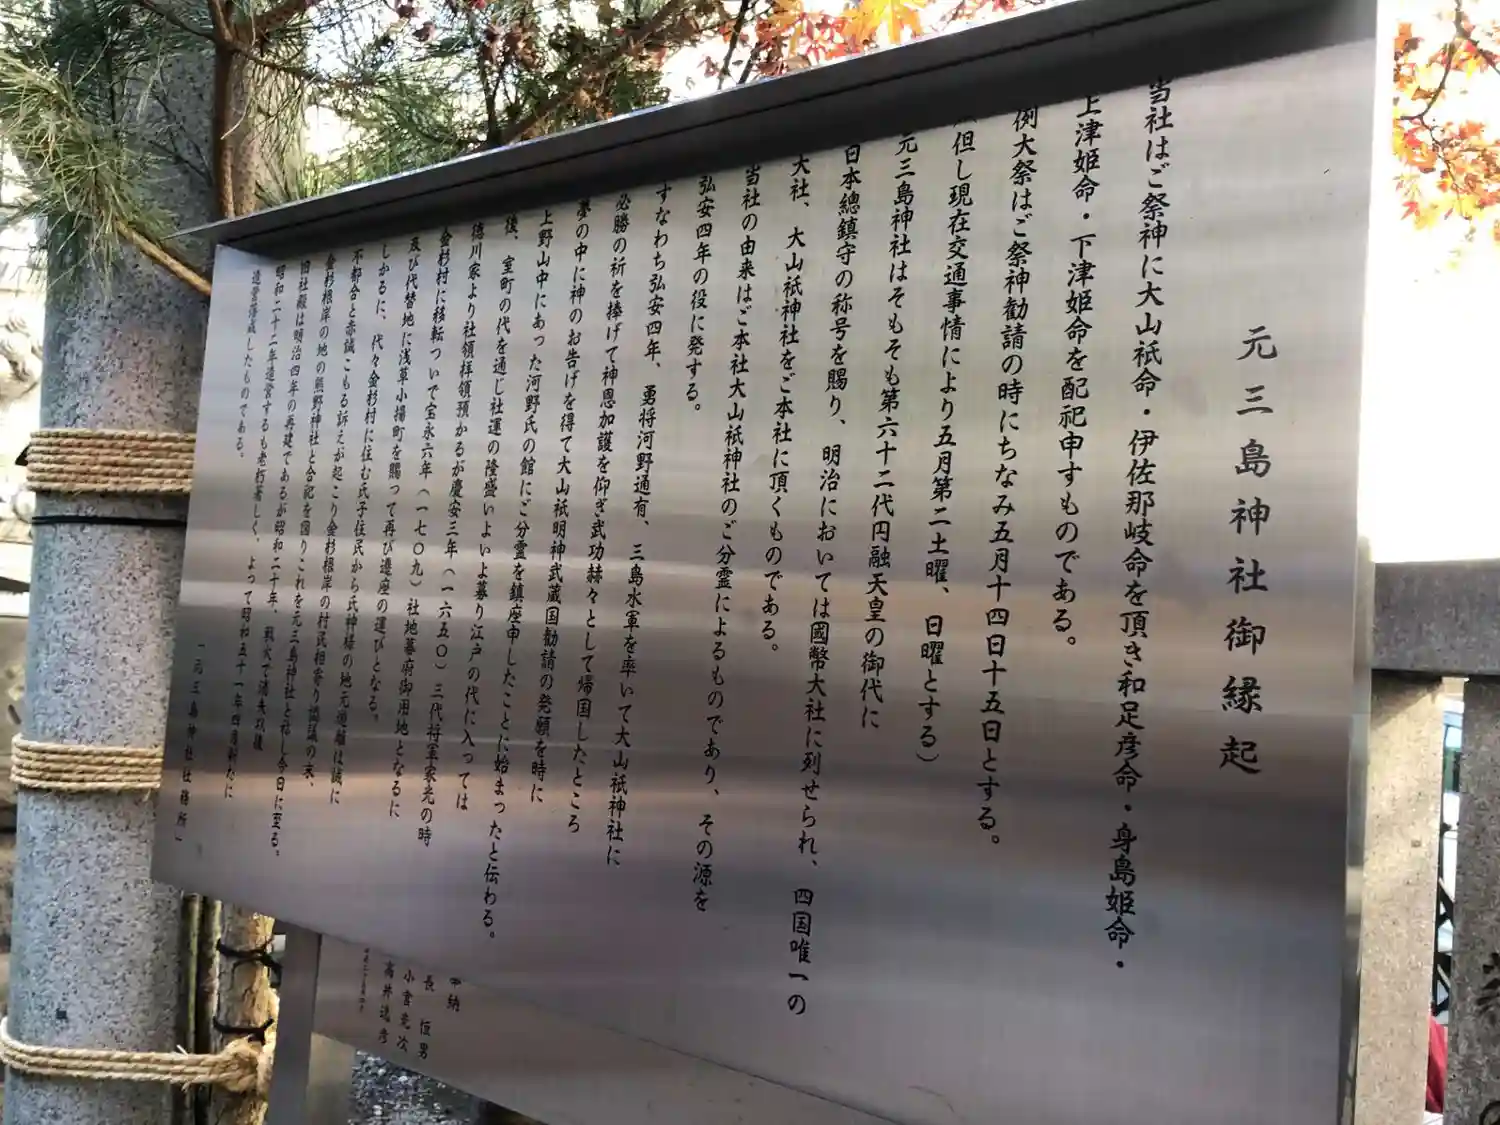 元三島神社御縁起
当社はご祭神に大山祇命・伊佐那岐命を頂き和足彦命・身島姫命・
上津姫命・下津姫命を配祀申すものである。
例大祭はご祭神勧請の時にちなみ五月十四日十五日とする。
但し現在交通事情により五月第二土曜、日曜とする）
元三島神社はそもそも第六十二代円融天皇の御代に
日本總鎮守の称号を賜り、明治においては國幣大社に列せられ、四国唯一の
大社、大山祇神社をご本社に頂くものである。
当社の由来はご本社大山祇神社のご分霊によるものであり、その源を
弘安四年の役に発する。
すなわち弘安四年、勇将河野通有、三島水軍を率いて大山祇神社に
必勝の祈を捧げて神恩加護を仰ぎ武功赫々として帰国したところ
夢の中に神のお告げを得て大山祇明神武蔵国勧請の発願を時に
上野山中にあった河野氏の館にご分霊を鎮座申したことに始まったと伝わる。
後、室町の代を通じ社運の隆盛いよいよ募り江戸の代に入っては
徳川家より社領拝領預かるが慶安三年（一六五〇）三代将軍家光の時
金杉村に移転ついで宝永六年（一七〇九）社地幕府御用地となるに
及び代替地に浅草小揚町を賜って再び遷座の運びとなる。
しかるに、代々金杉村に住む氏子住民から氏神様の地元遊離は誠に
不都合と赤誠こもる訴えが起こり金杉根岸の村民相寄り協議の末、
金杉根岸の地の熊野神社と合祀を図りこれを元三島神社と称し今日に至る。
旧社殿は明治四年の再建であるが昭和二十年、戦火で焼失以後
昭和二十二年造営するも老朽著しく、よって昭和五十一年四月新たに
造営落成したものである。
「元三島神社社務所」
納
長 恒男
小宮
高井